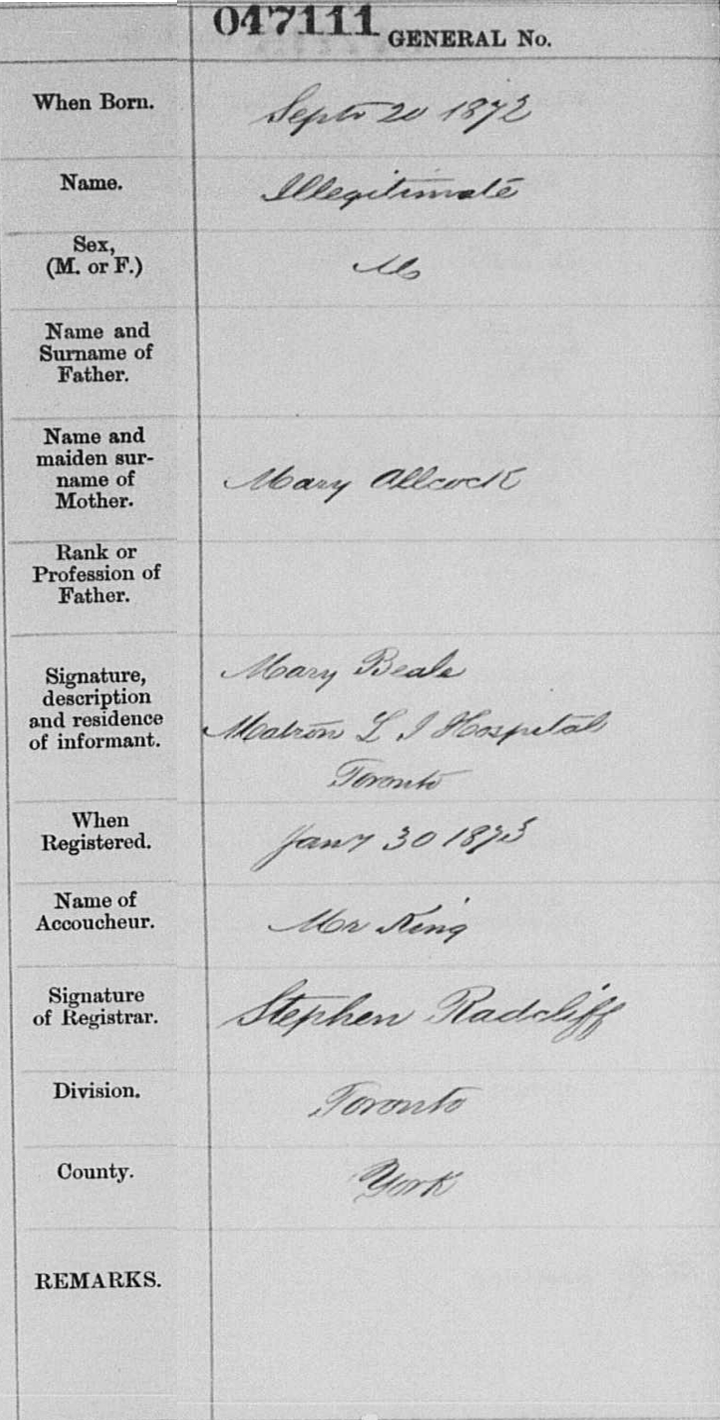 047111 GENERAL No.
When Born. Septr 20 1872
Name. Illegitimate
Sex,
(M. or F.) M
Name and
Surname of
Father.
Name and
maiden sur-
name of
Mother. Mary Allcock
Rank or
Profession of
Father.
Signature,
description
and residence
of informant. Mary Beale
Matron L I Hospital
Toronto
When
Registered. Jany 30 1873
Name of
Accoucheur. Mr King
Signature
of Registrar. Stephen Radcliff
Division. Toronto
County. York
REMARKS.